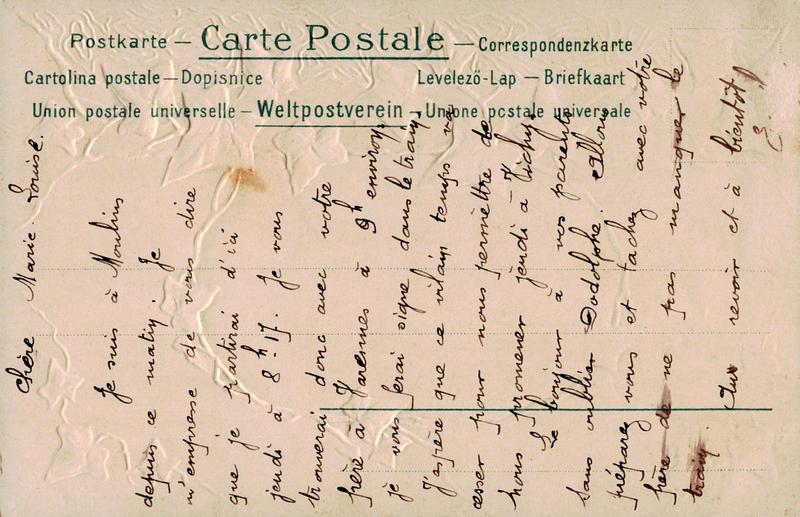 Postkarte — Carte Postale — Correspondenzkarte
Cartolina postale — Dopisnice Levelező-Lap — Briefkaart
Union postale universelle — Weltpostverein — Unione postale universale
Chère Marie-Louise.
Je suis à Moulins
depuis ce matin. Je
m'empresse de vous dire
que je partirai d'ici
jeudi à 8h-17. Je vous
trouverai donc avec votre
père à Varennes à 9h environ,
je vous ferai signe dans le train,
J'espère que ce vilain temps va
cesser pour nous permettre de
nous promener jeudi à Vichy
Le bonjour à vos parents
sans oublier Dodolphe. Allons
préparez vous et tachez avec votre
père de ne pas manquer le
train. Au revoir et à bientôt
E.